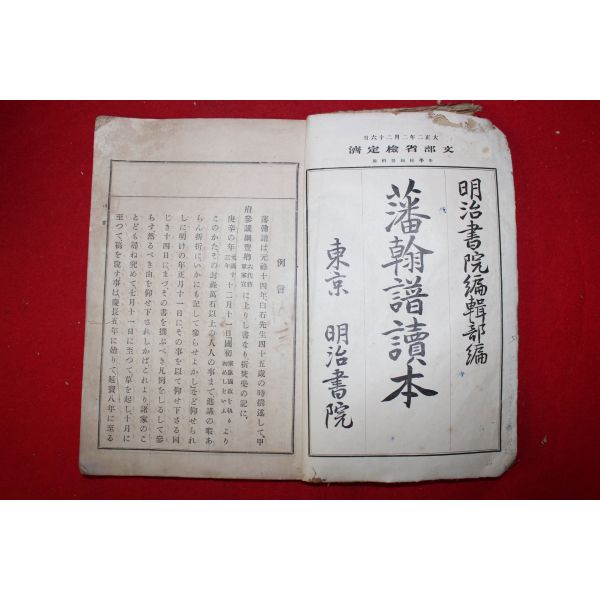 大正二年二月二十六日
文部省檢定濟
明治書院編輯部編
藩翰譜讀本
東京 明治書院
例言
藩翰譜は元祿十四年白石先生四十五歲の時撰述して、甲
府參議綱豐卿 六代將軍家宣 に上りし書なり折焚柴の記に、
庚辛の年 元祿十三年 十二月十一日國初 より
このかたその封祿萬石以上の人人の事まで進講の暇あ
らん折折にいかにも記して參らせよかしなど仰せられ
しに明けの年正月十一日にその事を以て仰せ下さる同
じき十四日にまづその書を撰ぶべき凡例をしるして參
らす然るべき由を仰せ下されしかばこれより諸家のこ
とども尋ね究めて七月十一日に至つて草を起し十月に
至つて稿を脫す事は慶長五年に始りて延寶八年に至る